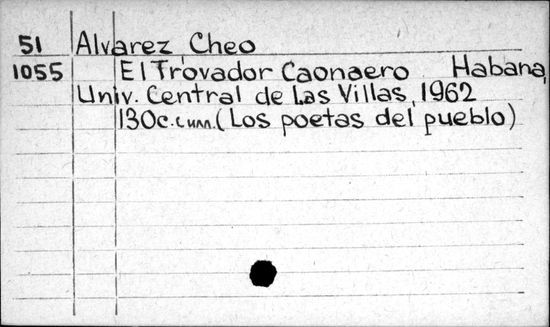 51 Alvarez, Cheo
1055 El Trovador Caonaero Habana,
Univ. Central de Las Villas, 1962
130c.cum. (Los poetas del pueblo)